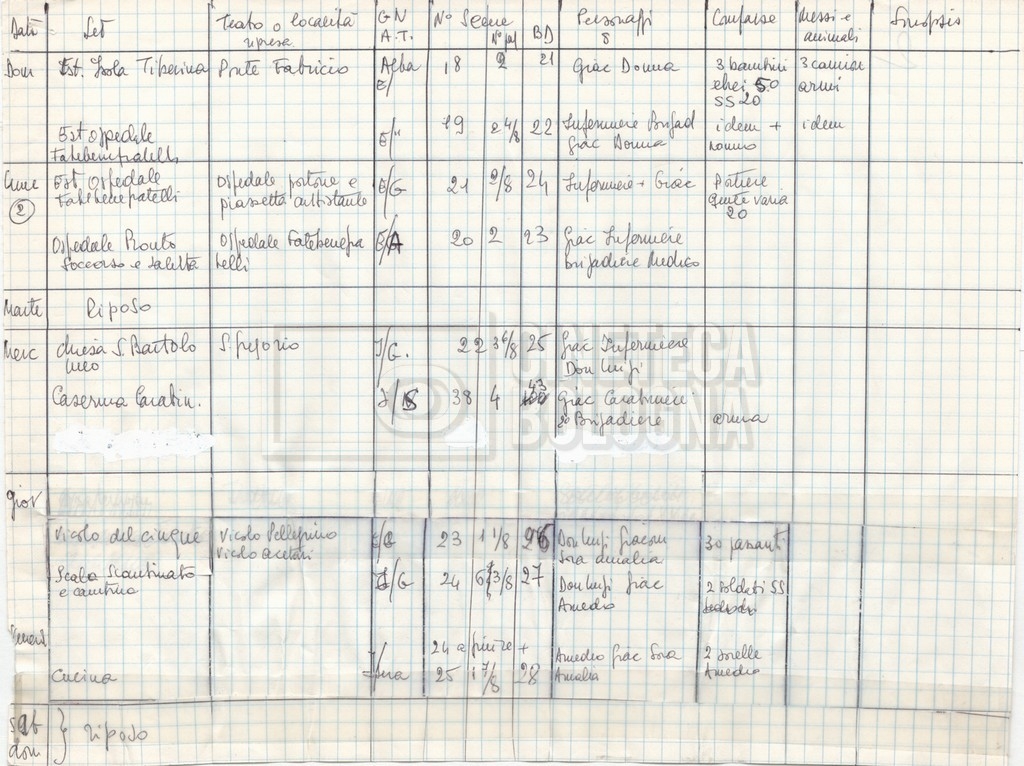 Date Set Teatro o località ripresa GN A.T. N° Scene N° pal BD Personaggi 8 Comparse Messi e animali Sinopsis
Dom Est. Isola Tiberina Ponte Fabricio Alba E/ 18 2 21 Giac Donna 3 bambini ebrei 50 SS 20 3 camion armi
Est Ospedale Fatebenefratelli E/" 19 2 4/8 22 Infermiere Brigad Giac Donna idem + idem
2 Est Ospedale Fatebenefratelli Ospedale portone e piazzetta antistante E/G 21 2/8 24 Infermiere + Giac Portiere Gente varia 20
Ospedale Pronto Soccorso e saletta Ospedale Fatebenefratelli 20 2 23 Giac Infermiere brigadiere Medico
Marte Riposo
Merc chiesa S. Bartolomeo S. Gregorio I/G. 22 3 6/8 25 Giac Infermiere Don Luigi
Caserma Carabin. 38 4 43 Giac Carabiniere 2° Brigadiere arma
Giov
Vicolo del cinque Vicolo Pellegrino 23 1 1/8 26 Don Luigi Giacom Sora Amalia 30 passanti
Scala Scantinato e cantina I/G 24 6 3/8 27 Don Luigi Giac Amedeo 2 soldati SS
24 a finire +
Cucina 25 1 7/8 28 Amedeo Giac Sora Amalia 2 sorelle Amedeo
Sab dom } riposo
CINETECA
BOLOGNA